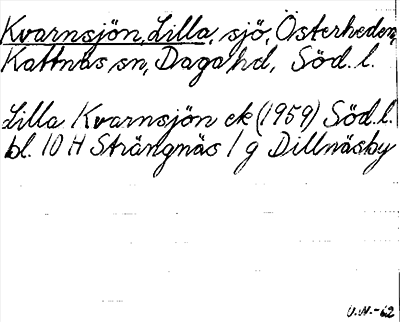 Kvarnsjön, Lilla, sjö, Österheden,
Kattnäs sn, Daga hd, Söd.l.
Lilla Kvarnsjön ek (1959) Söd.l.
bl. 10 H Strängnäs 1 g Dillnäsby
U.N.-62